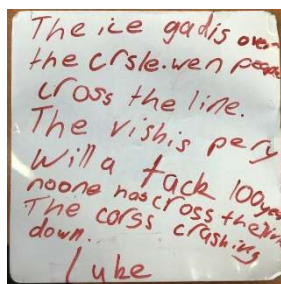 The ice gadis over
the crsle. wen people
cross the line.
The vishis pery
Will a tack 100 years
no one has cross the line
The corss crashing
down.
Luke